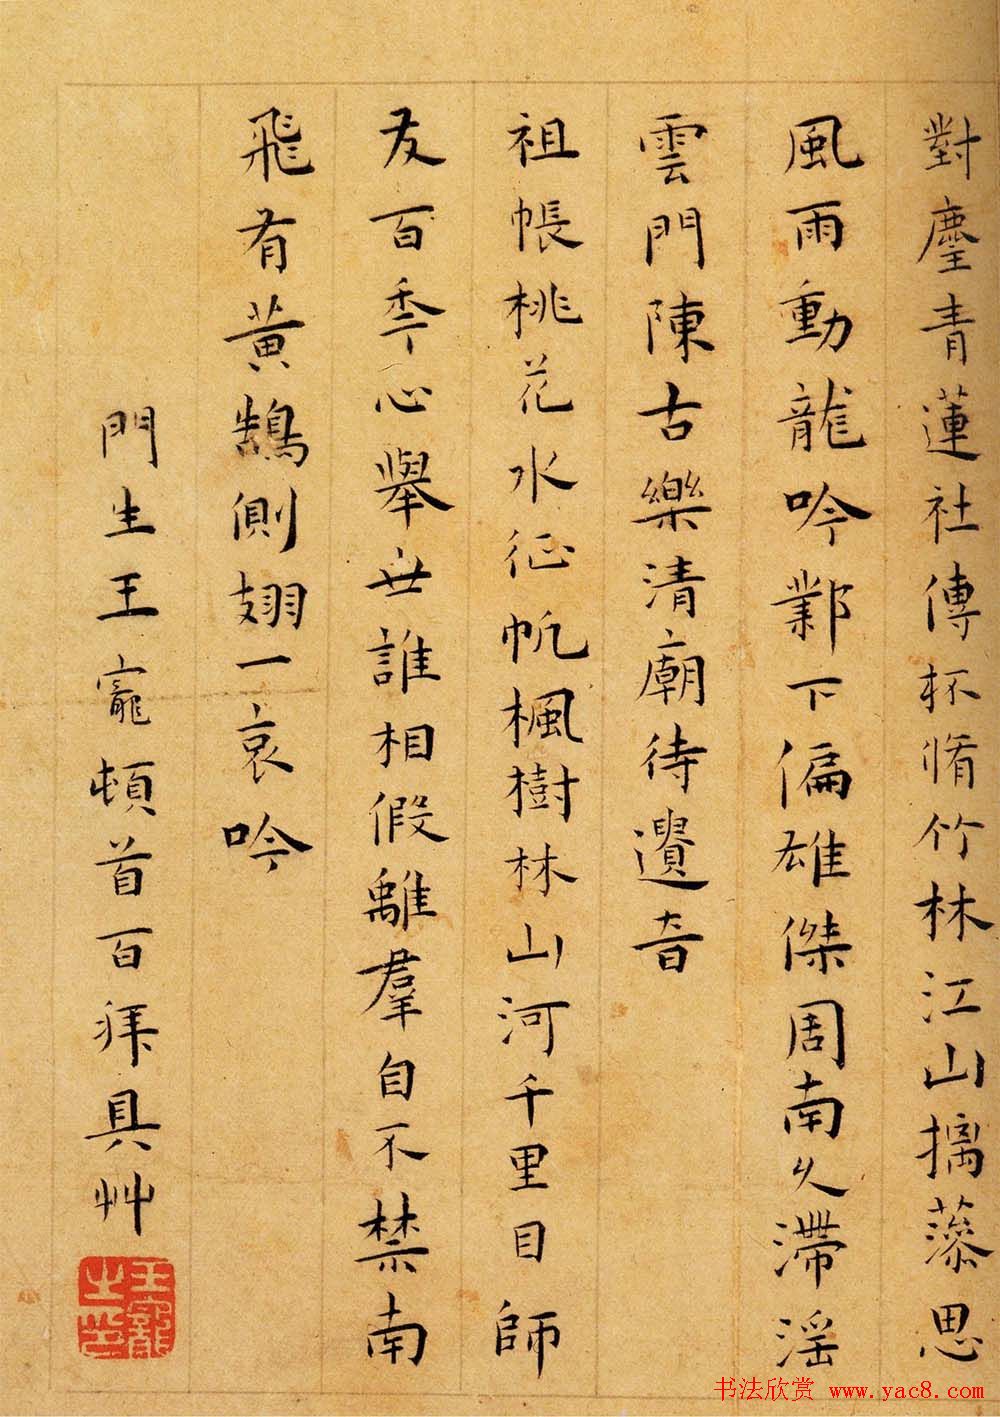 對麈青蓮社傳杯脩竹林江山摛藻思
風雨動龍吟鄴下偏雄傑周南久滯淫
雲門陳古樂清廟待遺音
祖帳桃花水征帆楓樹林山河千里目師
友百秊心舉世誰相假離羣自不禁南
飛有黃鵠側翅一哀吟
門生王寵頓首百拜具艸
王寵之印
书法欣赏 www.yac8.com